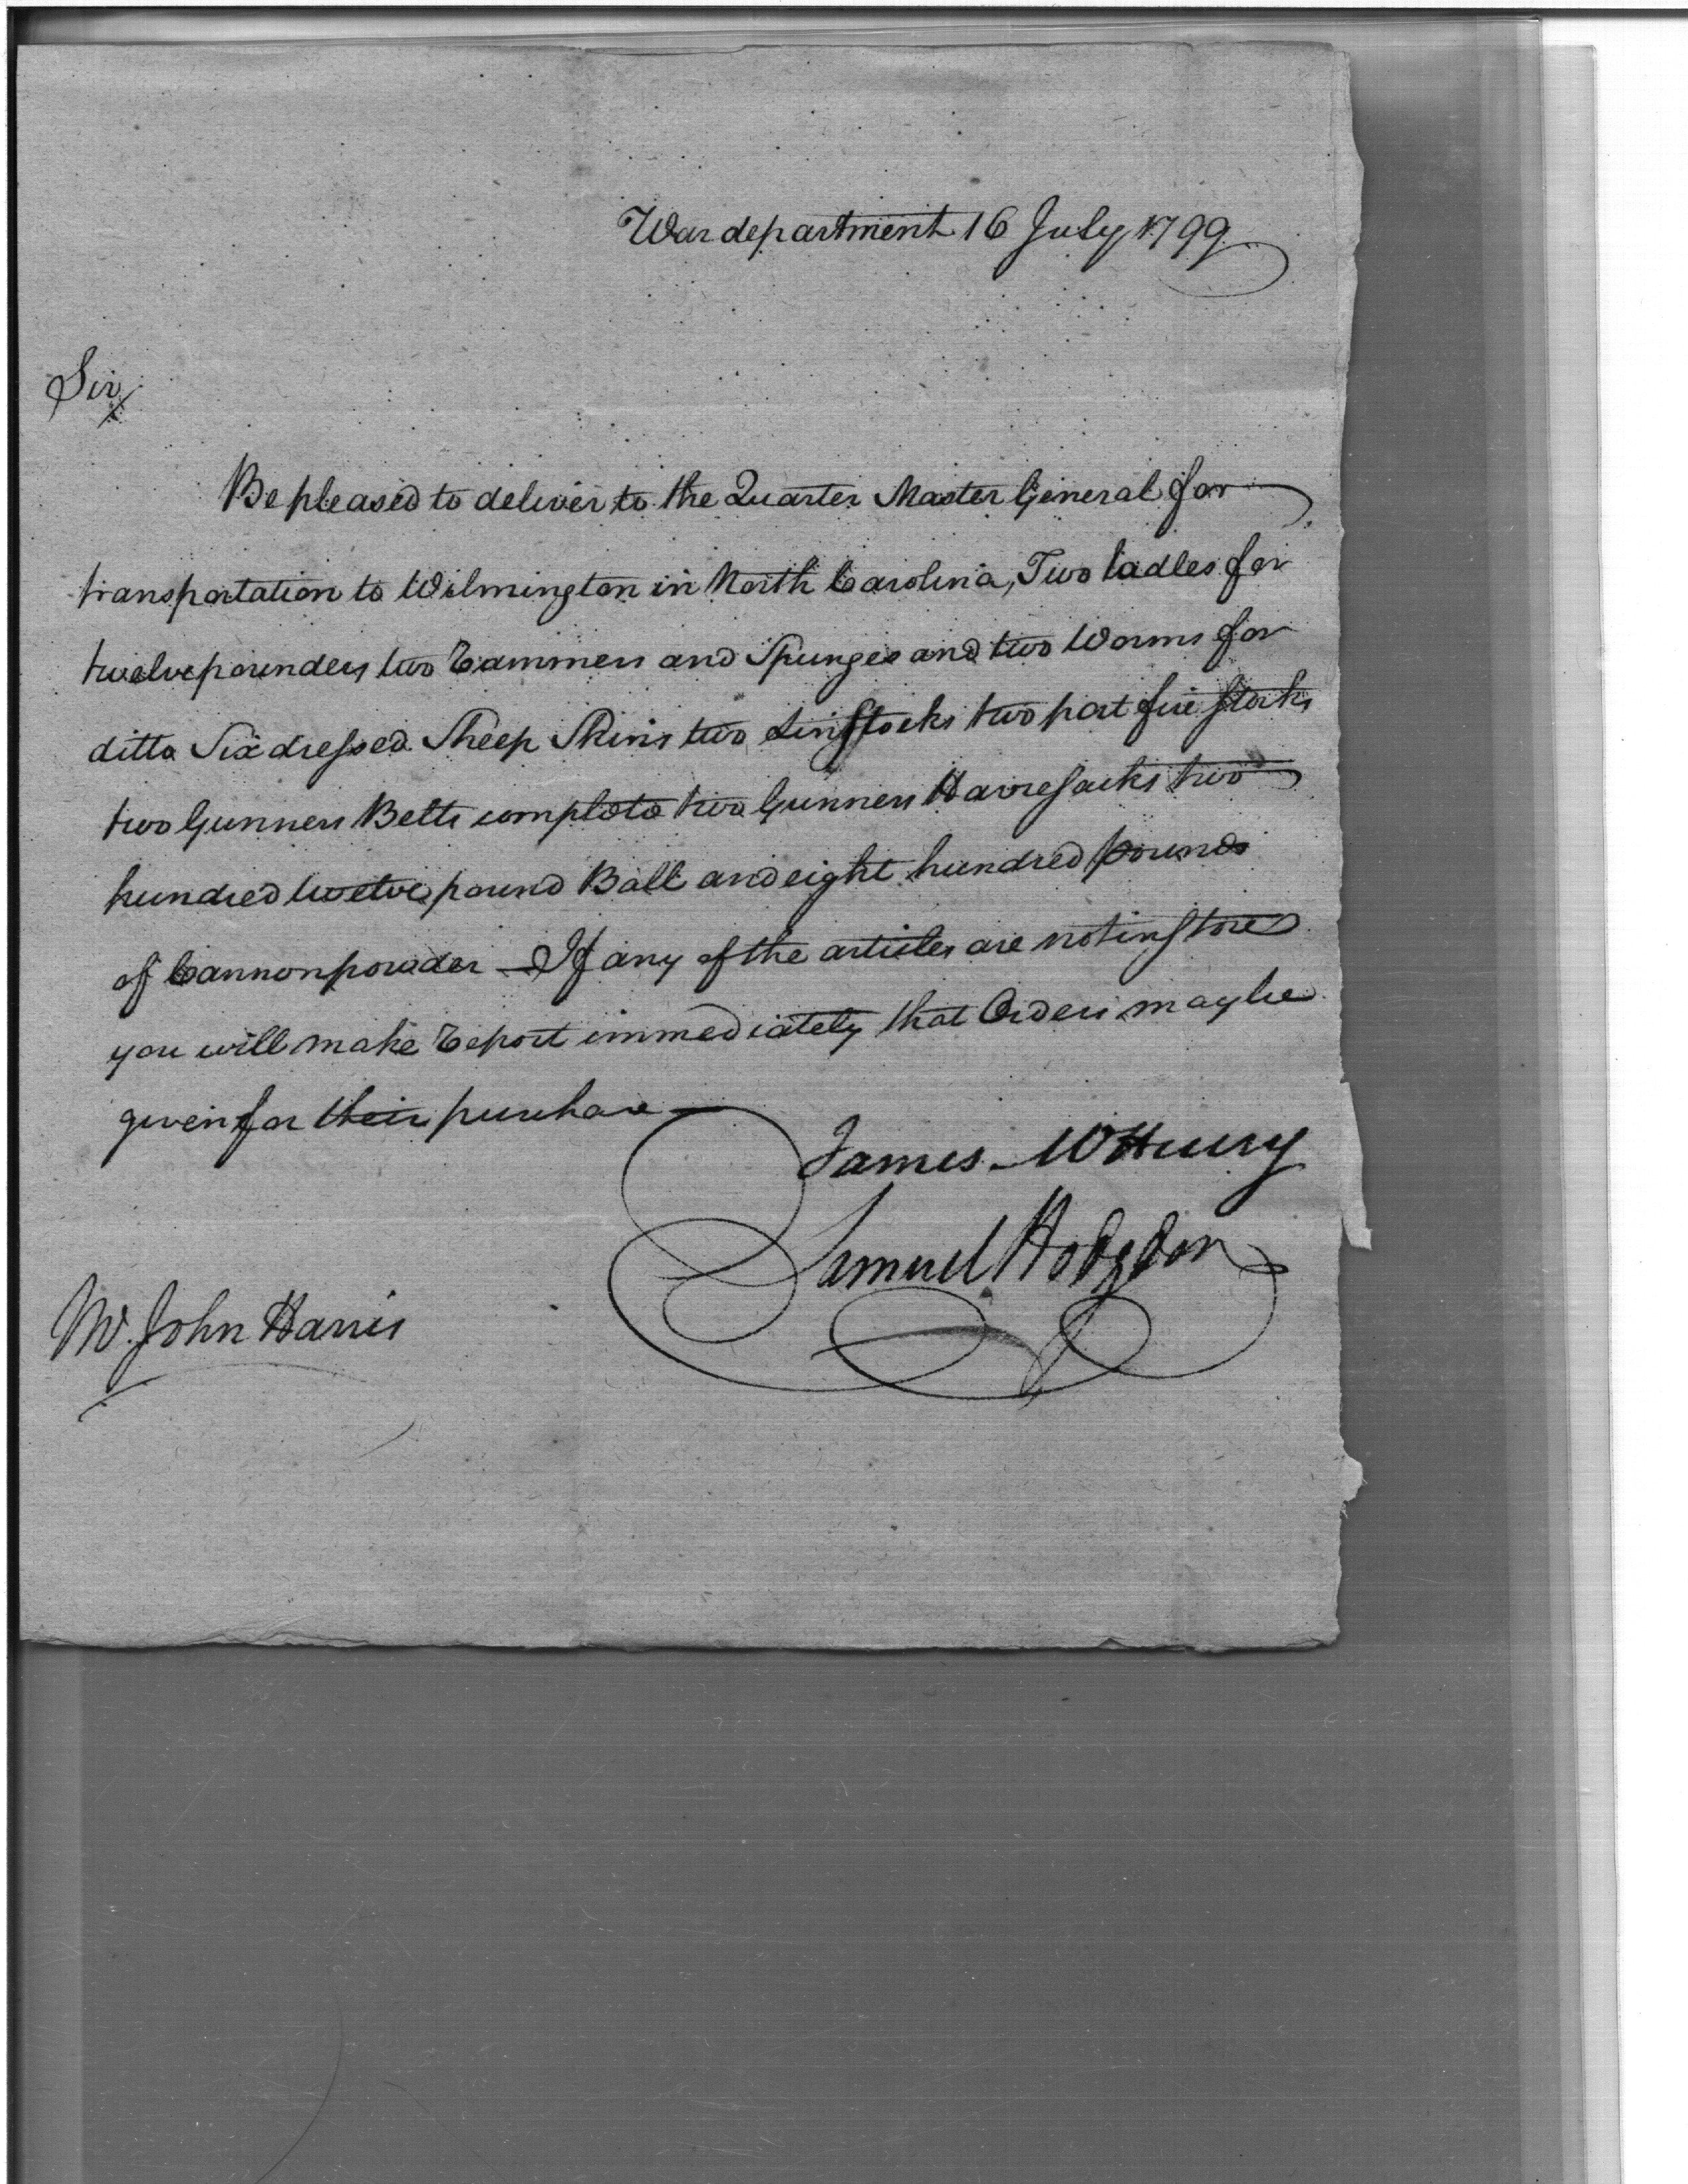 War department 16 July 1799
Sir,
Be pleased to deliver to the Quarter Master General for
transportation to Wilmington in North Carolina, Two ladles for
twelve pounders two rammers and Spunges and two Worms for
ditto Six dressed Sheep Skins two Linstocks two port fire stocks
two Gunners Belts complete two Gunners Haversacks two
hundred twelve pound Ball and eight hundred pounds
of Cannon powder — If any of the articles are not in store
you will make report immediately that Orders may be
given for their purchase —
James McHenry
Samuel Hodgdon
Mr. John Harris